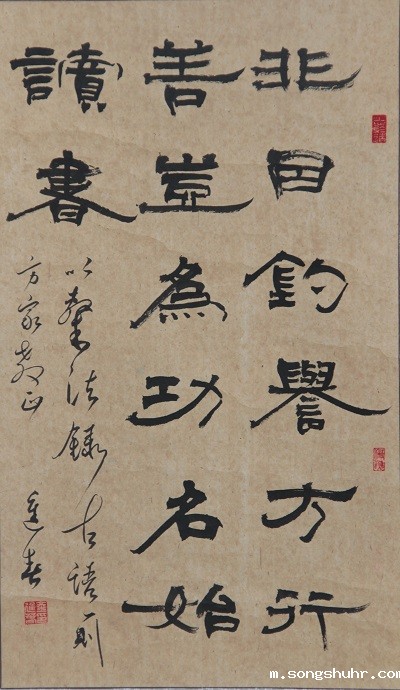 非因釣譽方行
善豈為功名始
讀書
以隸法錄古語一則
方家教正
進春
m.songshuhr.com